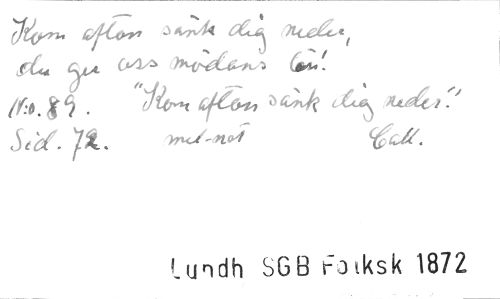 Kom afton sänk dig neder,
du ger oss mödans lön!
No. 89. "Kom afton sänk dig neder."
Sid. 72. mel-not
Lundh SGB Folksk 1872